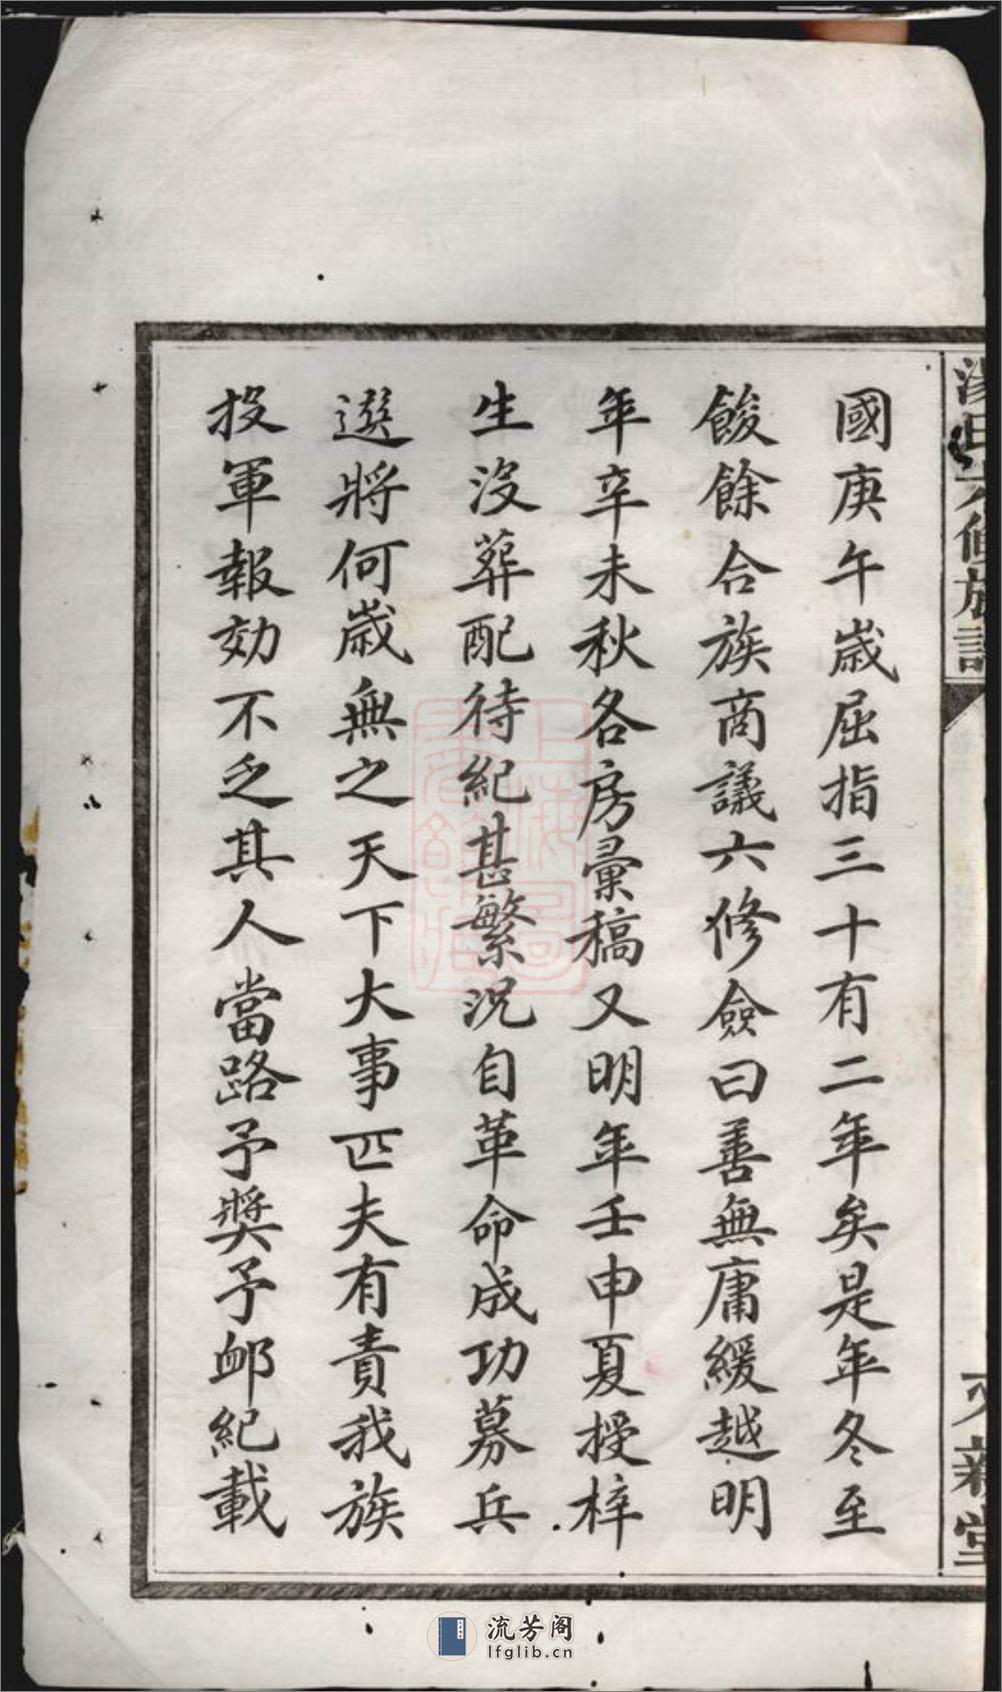 湯氏六修族譜
又新堂
國庚午歲屈指三十有二年矣是年冬至
餕餘合族商議六修僉曰善無庸緩越明
年辛未秋各房彙稿又明年壬申夏授梓
生沒葬配待紀甚繁況自革命成功募兵
選將何歲無之天下大事匹夫有責我族
投軍報効不乏其人當路予獎予卹紀載
流芳阁
lfglib.cn